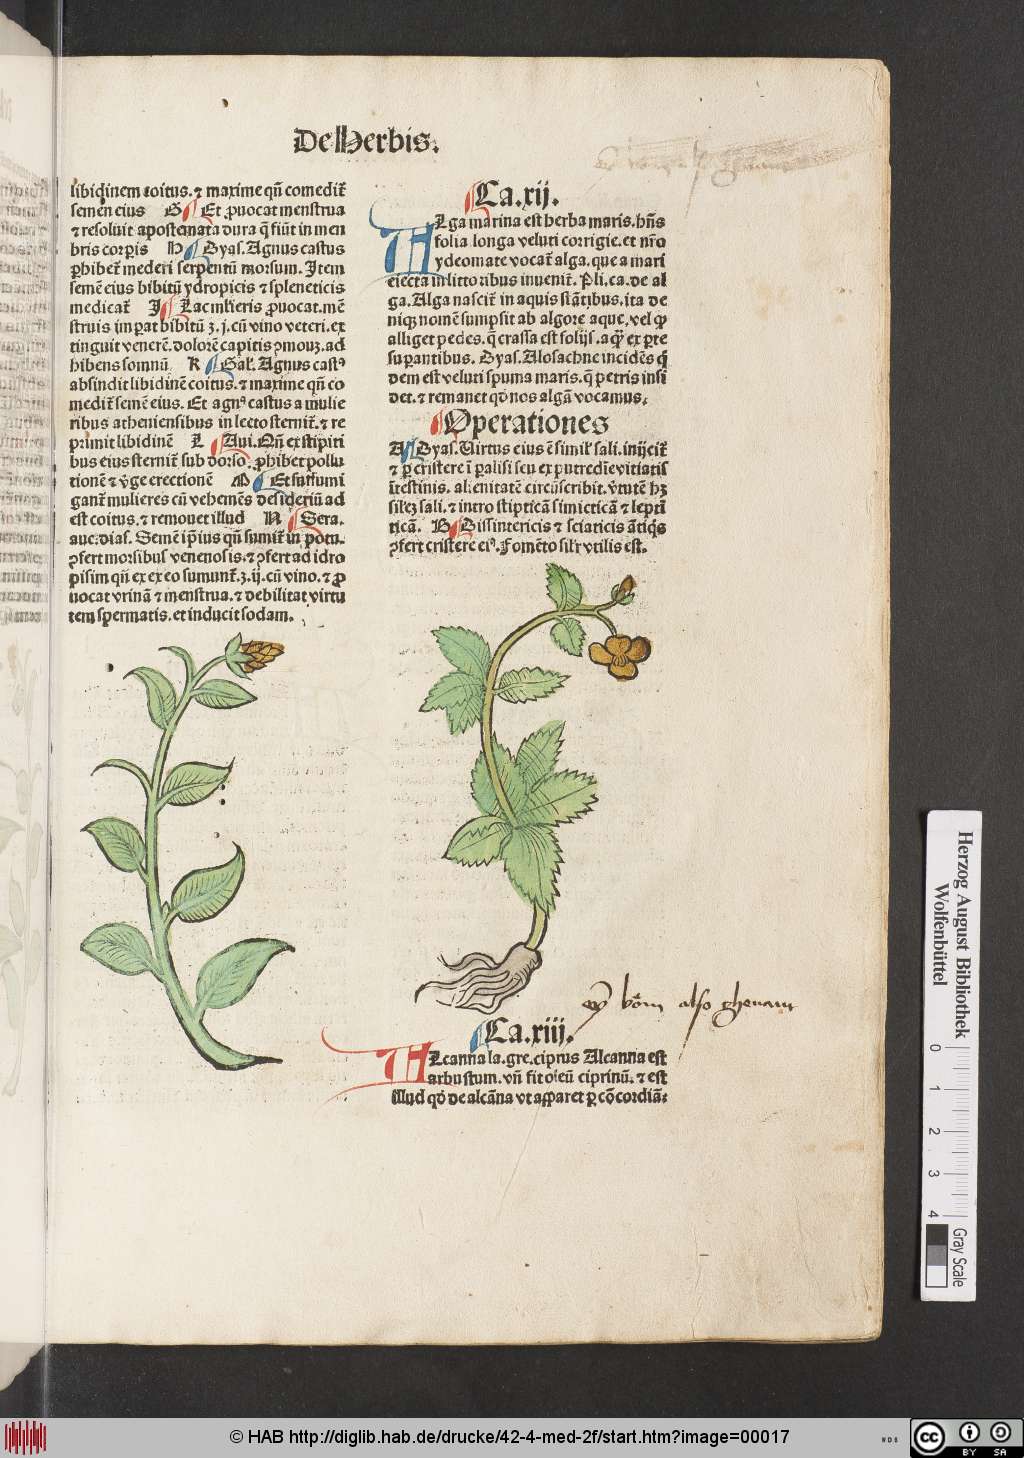 De Herbis.
libidinem coitus. ⁊ maxime qn̄ comedit᷑
semen eius G Et ꝓuocat menstrua
⁊ resoluit apostemata dura q̄ fiūt in mem
bris corꝑis H Dyas. Agnus castus
ꝓhibet᷑ mederi serpentū morsum. Item
semē eius bibitū ydropicis ⁊ spleneticis
medicat᷑ I Lac mĺieris ꝓuocat. mē
struis impat bibitū ʒ. j. cū vino veteri. ex
tinguit venerē. dolorē capitis ꝓmouʒ. ad
hibens somnū K Gal. Agnus castꝰ
absindit libidinē coitus. ⁊ maxime qn̄ co
medit᷑ semē eius. Et agnꝰ castus a mulie
ribus atheniensibus in lecto sternit᷑. ⁊ re
primit libidinē L Aui. Qn̄ ex stipiti
bus eius sternit᷑ sub dorso. ꝓhibet pollu
tionē ⁊ v̄ge erectionē M Et suffumi
gant᷑ mulieres cū vehemēs desideriū ad
est coitus. ⁊ remouet illud N Sera.
auc. dias. Semē ip̄ius qn̄ sumit᷑ in potu.
ꝯfert morsibus venenosis. ⁊ ꝯfert ad idro
pisim qn̄ ex eo sumunt᷑. ʒ. ij. cū vino. ⁊ ꝓ
uocat vrinā ⁊ menstrua. ⁊ debilitat virtu
tem spermatis. et inducit sodam.
Ca. xij.
Alga marina est herba maris. hn̄s
folia longa veluti corrigie. et nr̄o
ydeomate vocat᷑ alga. que a mari
eiecta in littoribus inuenit᷑. Pli. ca. de al
ga. Alga nascit᷑ in aquis stātibus. ita de
niqʒ nomē sumpsit ab algore aque, vel ꝙ
alliget pedes. q̄ crassa est folijs. aq̄ ex pte
supantibus. Dyas. Alosachne incidēs q̄
dem est veluti spuma maris. q̄ petris insi
det. ⁊ remanet qd̄ nos algā vocamus.
Operationes
A Dyas. Virtus eius ē simil' sali. inijcit᷑
⁊ ꝑ cristere ī ꝑalisi seu ex putredīe vitiatis
ītestinis. alienitatē circūscribit. v̄tutē hʒ
silēʒ sali. ⁊ intro stipticā simieticā ⁊ leptī
ticā. B Dissintericis ⁊ sciaticis ātiq̄s
ꝯfert cristere eiꝰ. Fomēto silr̄ vtilis est.
ey bom also ghenant
Ca. xiij.
Alcanna la. gre. ciprus Alcanna est
arbustum. vn̄ fit oleū ciprinū. ⁊ est
illud qd̄ de alcāna vt apparet ꝑ cōcordiā:
Herzog August Bibliothek
Wolfenbüttel
0 1 2 3 4
Gray Scale
© HAB http://diglib.hab.de/drucke/42-4-med-2f/start.htm?image=00017
WDB
cc BY SA